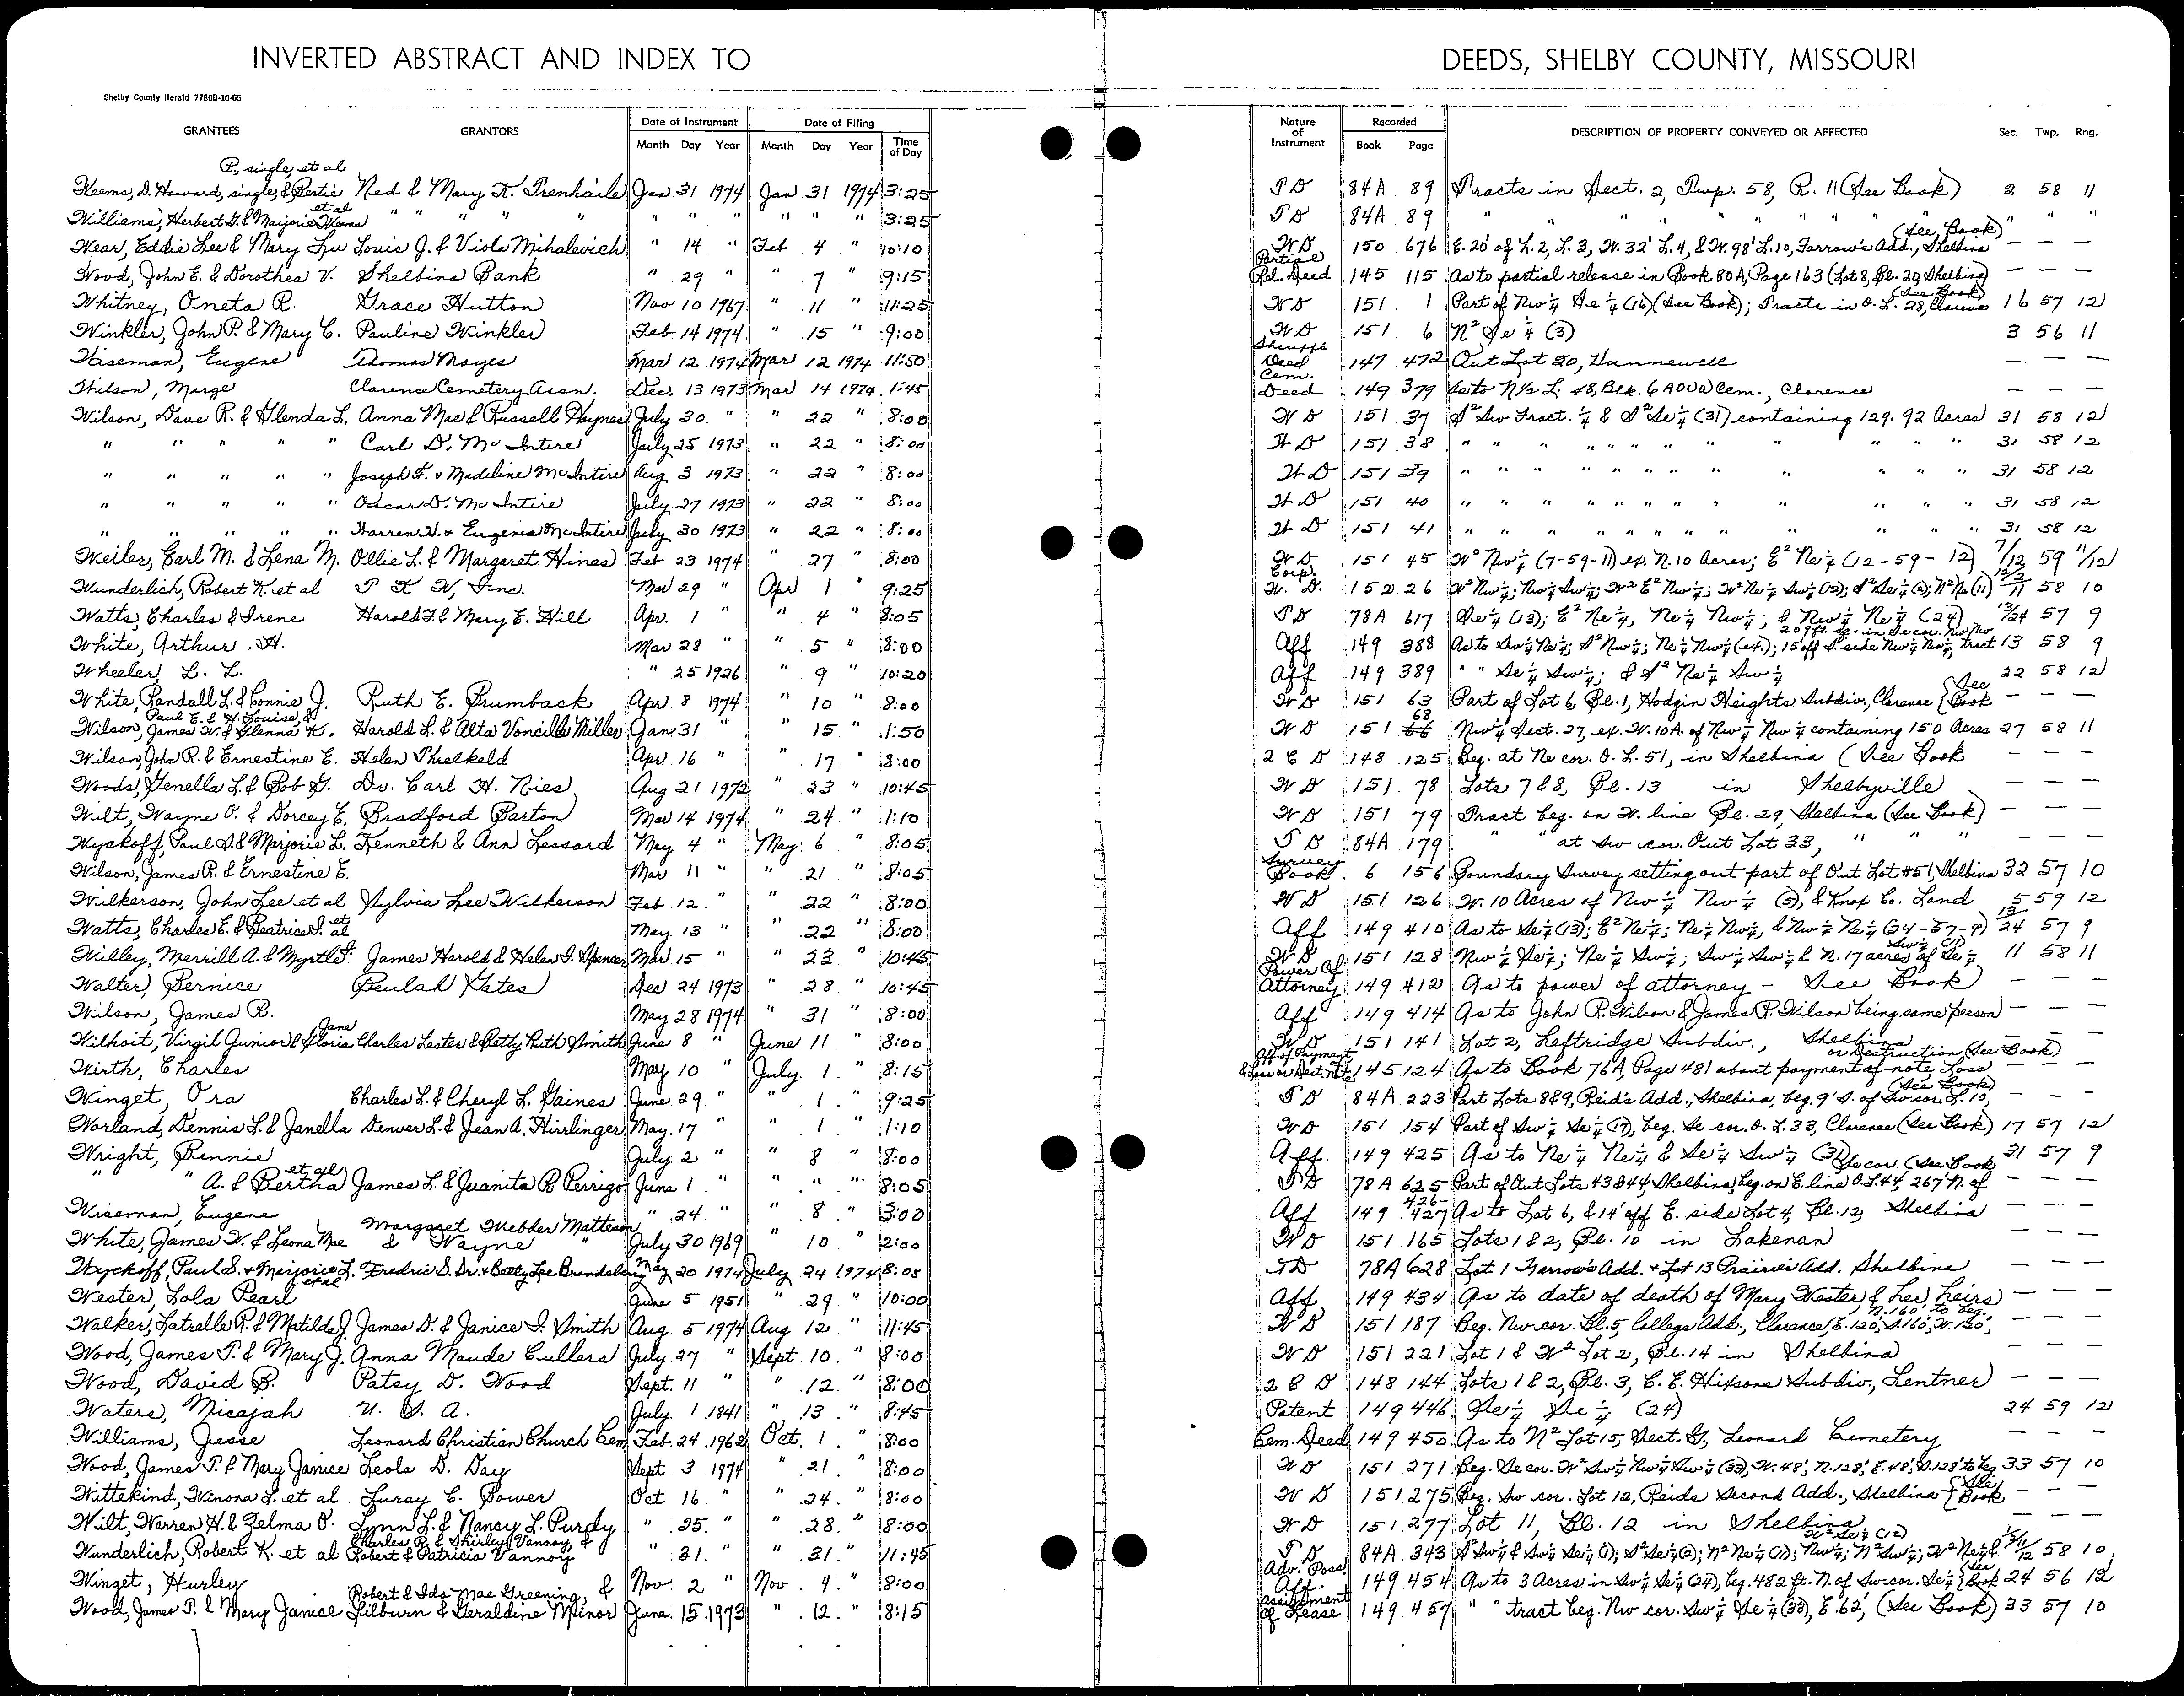 INVERTED ABSTRACT AND INDEX TO DEEDS, SHELBY COUNTY, MISSOURI
Shelby County Herald 7780B-10-65
GRANTEES GRANTORS Date of Instrument Month Day Year Date of Filing Month Day Year Time of Day Nature of Instrument Recorded Book Page DESCRIPTION OF PROPERTY CONVEYED OR AFFECTED Sec. Twp. Rng.
P., single, et al
Weems, D. Howard, single, & Bertie Ned & Mary K. Trenhaile Jan 31 1974 Jan 31 1974 3:25 TD 84A 89 Tracts in Sect. 2, Twp. 58, R. 11 (See Book) 2 58 11
Williams, Herbert G. & Marjorie Weems et al " " " " " " " " " " 3:25 TD 84A 89 " " " " " " " " " "
Wear, Eddie Lee & Mary Lu Louis J. & Viola Mihalevich " 14 " Feb 4 " 10:10 WD 150 676 E. 20' of L. 2, L. 3, W. 32' L. 4, & W. 98' L. 10, Farrow's Add., Shelbina (See Book) — — —
Wood, John E. & Dorothea V. Shelbina Bank " 29 " " 7 " 9:15 Partial Rel. Deed 145 115 As to partial release in Book 80A, Page 163 (Lot 8, Bl. 20, Shelbina) — — —
Whitney, Oneta R. Grace Hutton Nov 10 1967 " 11 " 11:25 WD 151 1 Part of Nw¼ Se¼ (16) (See Book); Tracts in O. L. 28, Clarence (See Book) 16 57 12
Winkler, John P. & Mary C. Pauline Winkler Feb 14 1974 " 15 " 9:00 WD 151 6 N² Se¼ (3) 3 56 11
Wiseman, Eugene Thomas Mayes Mar 12 1974 Mar 12 1974 11:50 Sheriff's Deed 147 472 Out Lot 20, Hunnewell — — —
Wilson, Marge Clarence Cemetery Assn. Dec. 13 1973 Mar 14 1974 1:45 Cem. Deed 149 379 As to N½ L. 48, Blk. 6 AOUW Cem., Clarence — — —
Wilson, Dave R. & Glenda L. Anna Mae & Russell Haynes July 30 " " 22 " 8:00 WD 151 37 S² Sw Fract. ¼ & S² Se¼ (31) containing 129.92 Acres 31 58 12
" " " " " Carl D. McIntire July 25 1973 " 22 " 8:00 WD 151 38 " " " " " " " " " " " 31 58 12
" " " " " Joseph F. & Madeline McIntire Aug 3 1973 " 22 " 8:00 WD 151 39 " " " " " " " " " " " 31 58 12
" " " " " Oscar D. McIntire July 27 1973 " 22 " 8:00 WD 151 40 " " " " " " " " " " " 31 58 12
" " " " " Warren H. & Eugenia McIntire July 30 1973 " 22 " 8:00 WD 151 41 " " " " " " " " " " " 31 58 12
Weiler, Carl M. & Lena M. Ollie L. & Margaret Hines Feb 23 1974 " 27 " 8:00 WD 151 45 W² Nw¼ (7-59-11) ex. N. 10 Acres; E² Ne¼ (12-59-12) 7/12 59 11/12
Wunderlich, Robert K. et al T K W, Inc. Mar 29 " Apr 1 " 9:25 Corp. W. D. 152 26 W² Nw¼; Nw¼ Sw¼; W² E² Nw¼; W² Ne¼ Sw¼ (12); S² Se¼ (2); N² Ne (11) 12/2/11 58 10
Watts, Charles & Irene Harold F. & Mary E. Hill Apr. 1 " " 4 " 8:05 TD 78A 617 Se¼ (13); E² Ne¼, Ne¼ Nw¼; & Nw¼ Ne¼ (24) 13/24 57 9
White, Arthur H. Mar 28 " " 5 " 8:00 Aff 149 388 As to Sw¼ Ne¼; S² Nw¼; Ne¼ Nw¼ (ex.); 15' off S. side Nw¼ Nw¼; tract 209 ft. sq. in Se cor. Nw Nw 13 58 9
Wheeler, L. L. " 25 1926 " 9 " 10:20 Aff 149 389 " " Se¼ Sw¼; & S² Ne¼ Sw¼ 22 58 12
White, Randall L. & Connie J. Ruth E. Brumback Apr 8 1974 " 10 " 8:00 WD 151 63 Part of Lot 6, Bl. 1, Hodgin Heights Subdiv., Clarence (See Book — — —
Paul E. & H. Louise, &
Wilson, James W. & Glenna K. Harold L. & Alta Voncille Miller Jan 31 " " 15 " 1:50 WD 151 68 Nw¼ Sect. 27, ex. W. 10A. of Nw¼ Nw¼ containing 150 Acres 27 58 11
Wilson, John R. & Ernestine E. Helen Threlkeld Apr. 16 " " 17 " 8:00 2 C D 148 125 Beg. at Ne cor. O. L. 51, in Shelbina (See Book — — —
Woods, Genella L. & Bob G. Dr. Carl H. Nies Aug 21 1972 " 23 " 10:45 WD 151 78 Lots 7 & 8, Bl. 13 in Shelbyville — — —
Wilt, Wayne O. & Dorcey E. Bradford Barton Mar 14 1974 " 24 " 1:10 WD 151 79 Tract beg. on W. line Bl. 29, Shelbina (See Book) — — —
Wyckoff, Paul S. & Marjorie L. Kenneth & Ann Lessard May 4 " May 6 " 8:05 TD 84A 179 " " at Sw cor. Out Lot 33, " " " — — —
Wilson, James R. & Ernestine E. Mar 11 " " 21 " 8:05 Survey Book 6 156 Boundary Survey setting out part of Out Lot #51, Shelbina 32 57 10
Wilkerson, John Lee et al Sylvia Lee Wilkerson Feb 12 " " 22 " 8:00 WD 151 126 W. 10 Acres of Nw¼ Nw¼ (5), & Knox Co. Land 5 59 12
Watts, Charles E. & Beatrice I. et al May 13 " " 22 " 8:00 Aff 149 410 As to Se¼ (13); E² Ne¼; Ne¼ Nw¼, & Nw¼ Ne¼ (24-57-9) 13/24 57 9
Willey, Merrill A. & Myrtle F. James Harold & Helen I. Spencer Mar 15 " " 23 " 10:45 WD 151 128 Nw¼ Se¼; Ne¼ Sw¼; Sw¼ Sw¼ & N. 17 acres of Se¼ Sw¼ (11) 11 58 11
Walter, Bernice Beulah Yates Dec 24 1973 " 28 " 10:45 Power Of Attorney 149 412 As to power of attorney - See Book — — —
Wilson, James R. May 28 1974 " 31 " 8:00 Aff 149 414 As to John R. Wilson & James R. Wilson being same person — — —
Wilhoit, Virgil Junior & Gloria Jane Charles Lester & Betty Ruth Smith June 8 " June 11 " 8:00 WD 151 141 Lot 2, Leftridge Subdiv., Shelbina — — —
Wirth, Charles May 10 " July 1 " 8:15 Aff of Payment & Loss or Dest. note 145 124 As to Book 76A, Page 481 about payment of note, Loss or Destruction, (See Book) — — —
Winget, Ora Charles L. & Cheryl L. Gaines June 29 " " 1 " 9:25 TD 84A 223 Part Lots 8&9, Reid's Add., Shelbina, beg. 9' S. of Sw cor. L. 10, (See Book) — — —
Worland, Dennis L. & Janella Denver L. & Jean A. Hirrlinger May 17 " " 1 " 1:10 WD 151 154 Part of Sw¼ Se¼ (17), beg. Se cor. O. L. 33, Clarence (See Book) 17 57 12
Wright, Bennie July 2 " " 8 " 8:00 Aff. 149 425 As to Ne¼ Ne¼ & Se¼ Sw¼ (31) 31 57 9
" A. & Bertha et al James L. & Juanita R. Perrigo June 1 " " " " 8:05 TD 78A 625 Part of Out Lots 43 & 44, Shelbina, beg. on E. line O. L. 44, 267' N. of Se cor. (See Book — — —
Wiseman, Eugene " 24 " " 8 " 3:00 Aff 149 426-427 As to Lot 6, & 14' off E. side Lot 4, Bl. 12, Shelbina — — —
White, James W. & Leona Mae Margaret Webber Matteson & Wayne " July 30 1969 " 10 " 2:00 WD 151 165 Lots 1 & 2, Bl. 10 in Lakenan — — —
Wyckoff, Paul S. & Marjorie L. et al Fredric S. Dr. & Betty Lee May 20 1974 July 24 1974 8:05 TD 78A 628 Lot 1 Farrow's Add. & Lot 13 Prairie's Add. Shelbina — — —
Wester, Lola Pearl June 5 1951 " 29 " 10:00 Aff 149 434 As to date of death of Mary Wester & her heirs — — —
Walker, Latrelle R. & Matilda J. James D. & Janice I. Smith Aug. 5 1974 Aug 12 " 11:45 WD 151 187 Beg. Nw cor. Bl. 5, College Add., Clarence, E. 120', S. 160', W. 120', N. 160' to beg. — — —
Wood, James T. & Mary J. Anna Maude Cullers July 27 " Sept. 10 " 8:00 WD 151 221 Lot 1 & W² Lot 2, Bl. 14 in Shelbina — — —
Wood, David B. Patsy D. Wood Sept. 11 " " 12 " 8:00 2 C D 148 144 Lots 1 & 2, Bl. 3, C. E. Hixsons Subdiv., Lentner — — —
Waters, Micajah U. S. A. July 1 1841 " 13 " 8:45 Patent 149 446 Se¼ Se¼ (24) 24 59 12
Williams, Jesse Leonard Christian Church Cem. Feb. 24 1962 Oct. 1 " 8:00 Cem. Deed 149 450 As to N² Lot 15, Sect. G, Leonard Cemetery — — —
Wood, James T. & Mary Janice Leola D. Day Sept 3 1974 " 21 " 8:00 WD 151 271 Beg. Se cor. W² Sw¼ Nw¼ Sw¼ (33), W. 48', N. 128', E. 48', S. 128' to beg 33 57 10
Wittekind, Winona L. et al Luray C. Power Oct 16 " " 24 " 8:00 WD 151 275 Beg. Sw cor. Lot 12, Reids Second Add., Shelbina (See Book — — —
Wilt, Warren H. & Zelma O. Lynn L. & Nancy L. Purdy " 25 " " 28 " 8:00 WD 151 277 Lot 11, Bl. 12 in Shelbina — — —
Wunderlich, Robert K. et al Charles R. & Shirley Vannoy & Robert & Patricia Vannoy " 21 " " 31 " 11:45 TD 84A 343 S² Sw¼ & Sw¼ Se¼ (1); S² Se¼ (2); N² Ne¼ (11); Nw¼; N² Sw¼; W² Ne¼ & W² Se¼ (12) 58 10
Winget, Hurley Nov. 2 " Nov. 4 " 8:00 Adv. Poss. Aff. 149 454 As to 3 Acres in Sw¼ Se¼ (24), beg. 482 ft. N. of Sw cor. Se¼ (See Book 24 56 12
Wood, James T. & Mary Janice Robert & Ida Mae Greening, & Lilburn & Geraldine Minor June 15 1973 " 12 " 8:15 Assignment of Lease 149 457 " " tract beg. Nw cor. Sw¼ Se¼ (33), E. 62', (See Book) 33 57 10